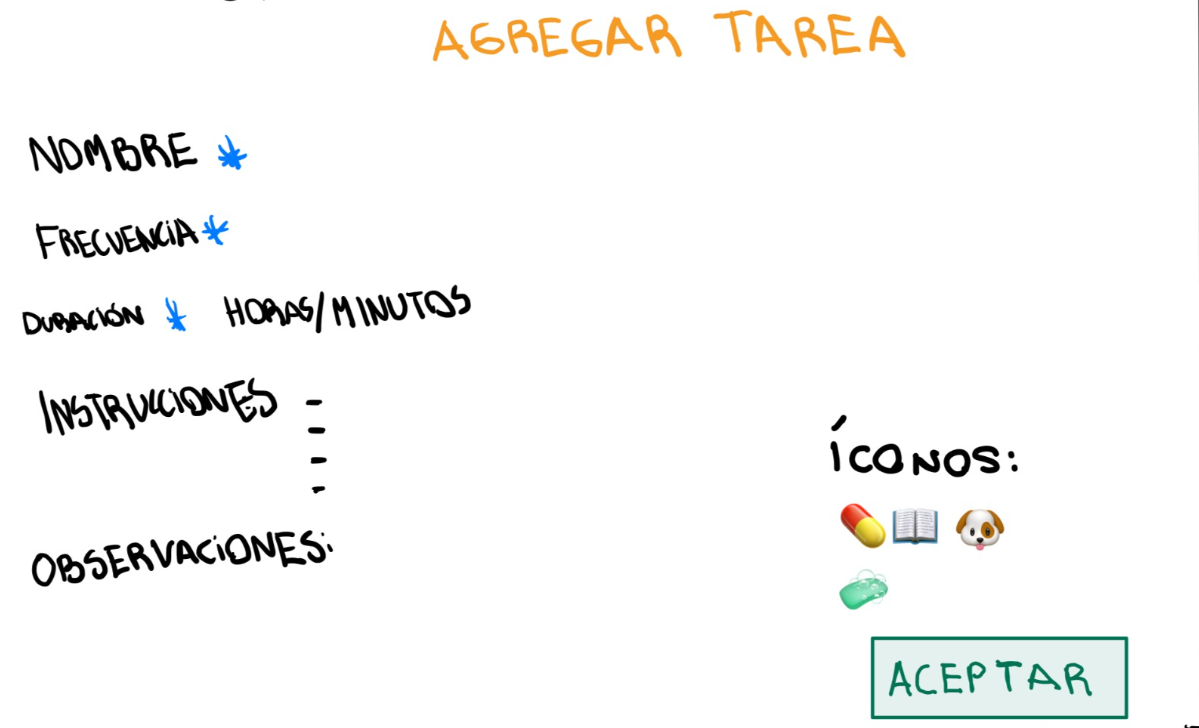 AGREGAR TAREA
NOMBRE *
FRECUENCIA *
DURACIÓN * HORAS/MINUTOS
INSTRUCCIONES -
-
-
-
ÍCONOS:
OBSERVACIONES:
ACEPTAR